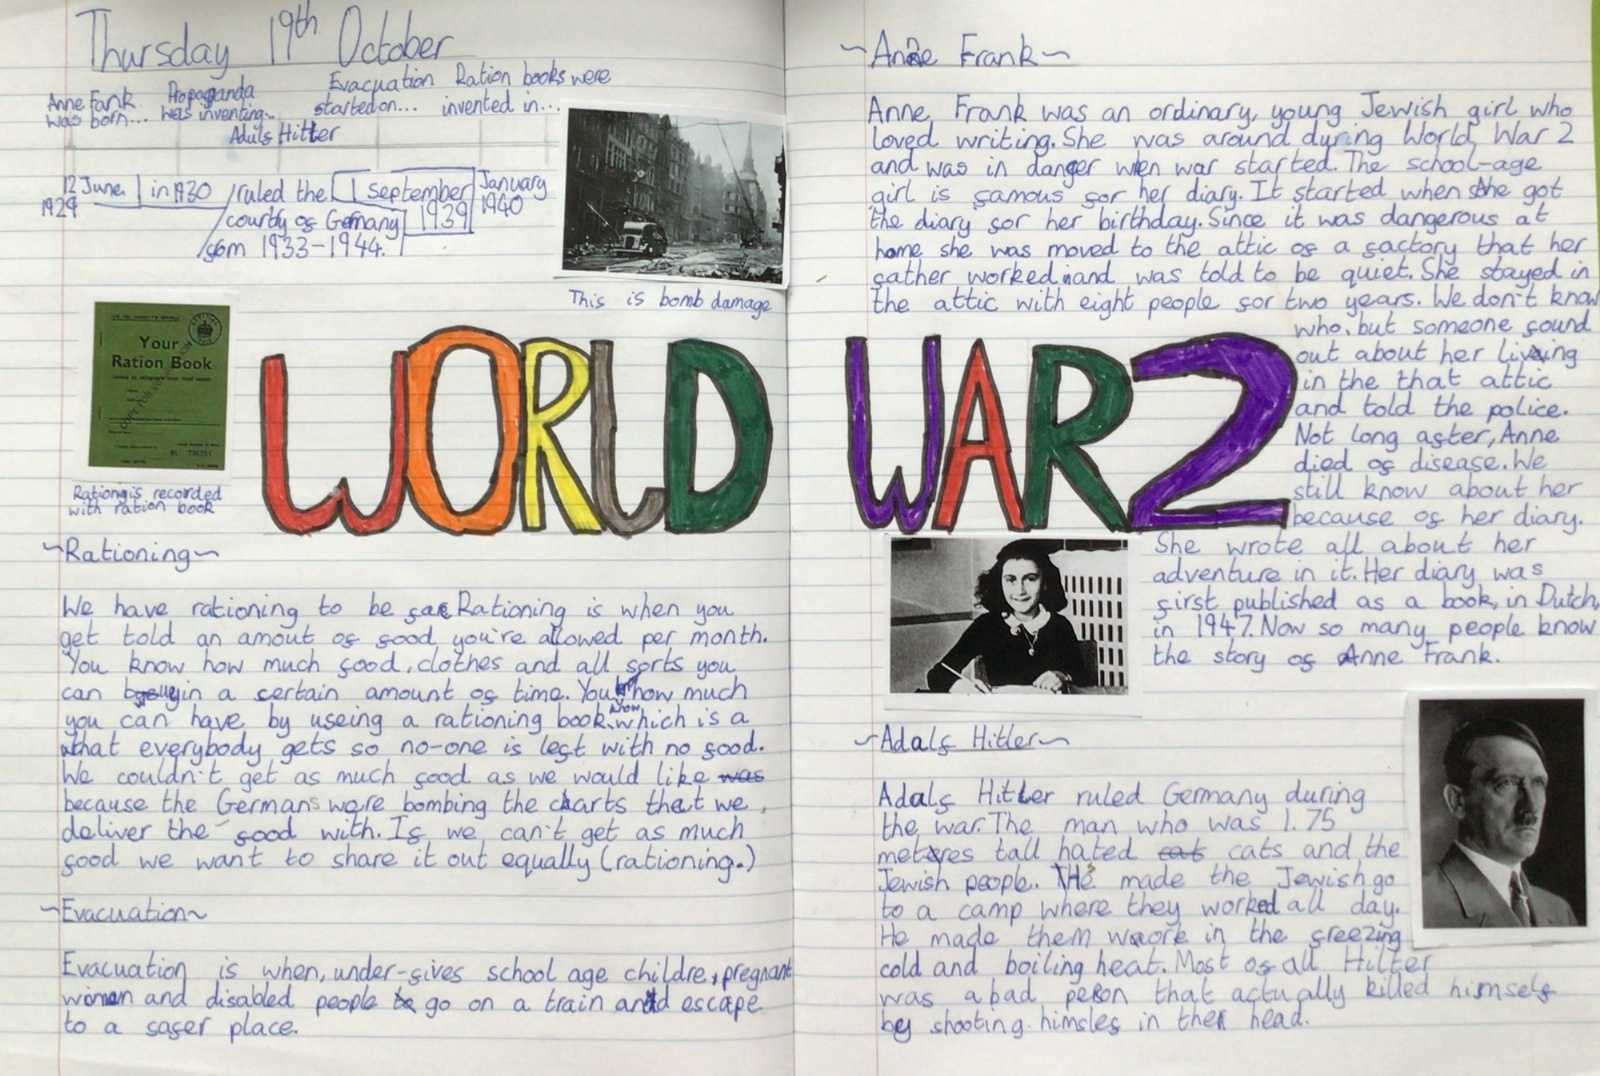 Thursday 19th October
Anne Fank was born...
Propaganda was inventing...
Evacuation started on...
Ration books were invented in...
Aduls Hitler
12 June 1929
in 1930
ruled the courty of Germany fom 1933-1944.
1 september 1939
January 1940
This is bomb damage
Your
Ration Book
Rationg is recorded
with ration book
~Rationing~
We have rationing to be Rationing is when you
get told an amout of food you're allowed per month.
You know how much food, clothes and all sorts you
can buy in a certain amount of time. You know how much
you can have by useing a rationing book. now which is a
what everybody gets so no-one is left with no food.
We couldn't get as much food as we would like was
because the Germans were bombing the charts that we
deliver the food with. If we can't get as much
food we want to share it out equally (rationing.)
~Evacuation~
Evacuation is when, under-fives school age childre, pregnant
women and disabled people to go on a train and escape
to a safer place.
WORLD WAR 2
~Anne Frank~
Anne Frank was an ordinary, young Jewish girl who
loved writing. She was around during World War 2
and was in danger wen war started. The school-age
girl is famous for her diary. It started when she got
the diary for her birthday. Since it was dangerous at
home she was moved to the attic of a factory that her
father worked in and was told to be quiet. She stayed in
the attic with eight people for two years. We don't know
who, but someone found
out about her living
in the that attic
and told the police.
Not long after, Anne
died of disease. We
still know about her
because of her diary.
She wrote all about her
adventure in it. Her diary was
first published as a book, in Dutch,
in 1947. Now so many people know
the story of Anne Frank.
~Adalf Hitler~
Adalf Hitler ruled Germany during
the war. The man who was 1.75
metres tall hated cat cats and the
Jewish people. He made the Jewish go
to a camp where they worked all day.
He made them work in the freezing
cold and boiling heat. Most of all Hitler
was a bad person that actually killed himself
by shooting himslef in the head.